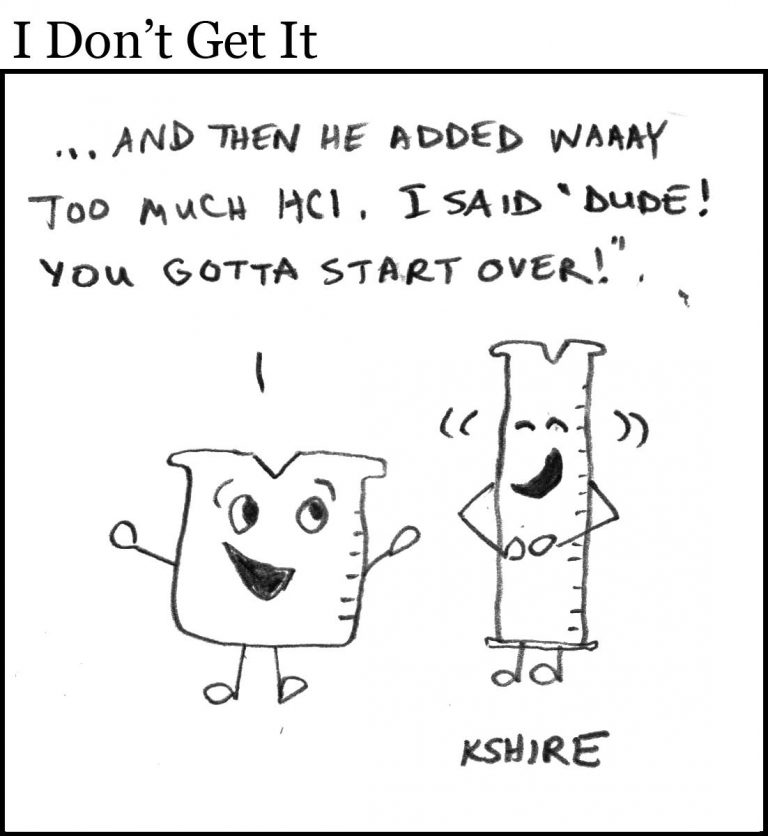 I Don’t Get It
... AND THEN HE ADDED WAAAY
TOO MUCH HCl. I SAID 'DUDE!
YOU GOTTA START OVER!".
KSHIRE